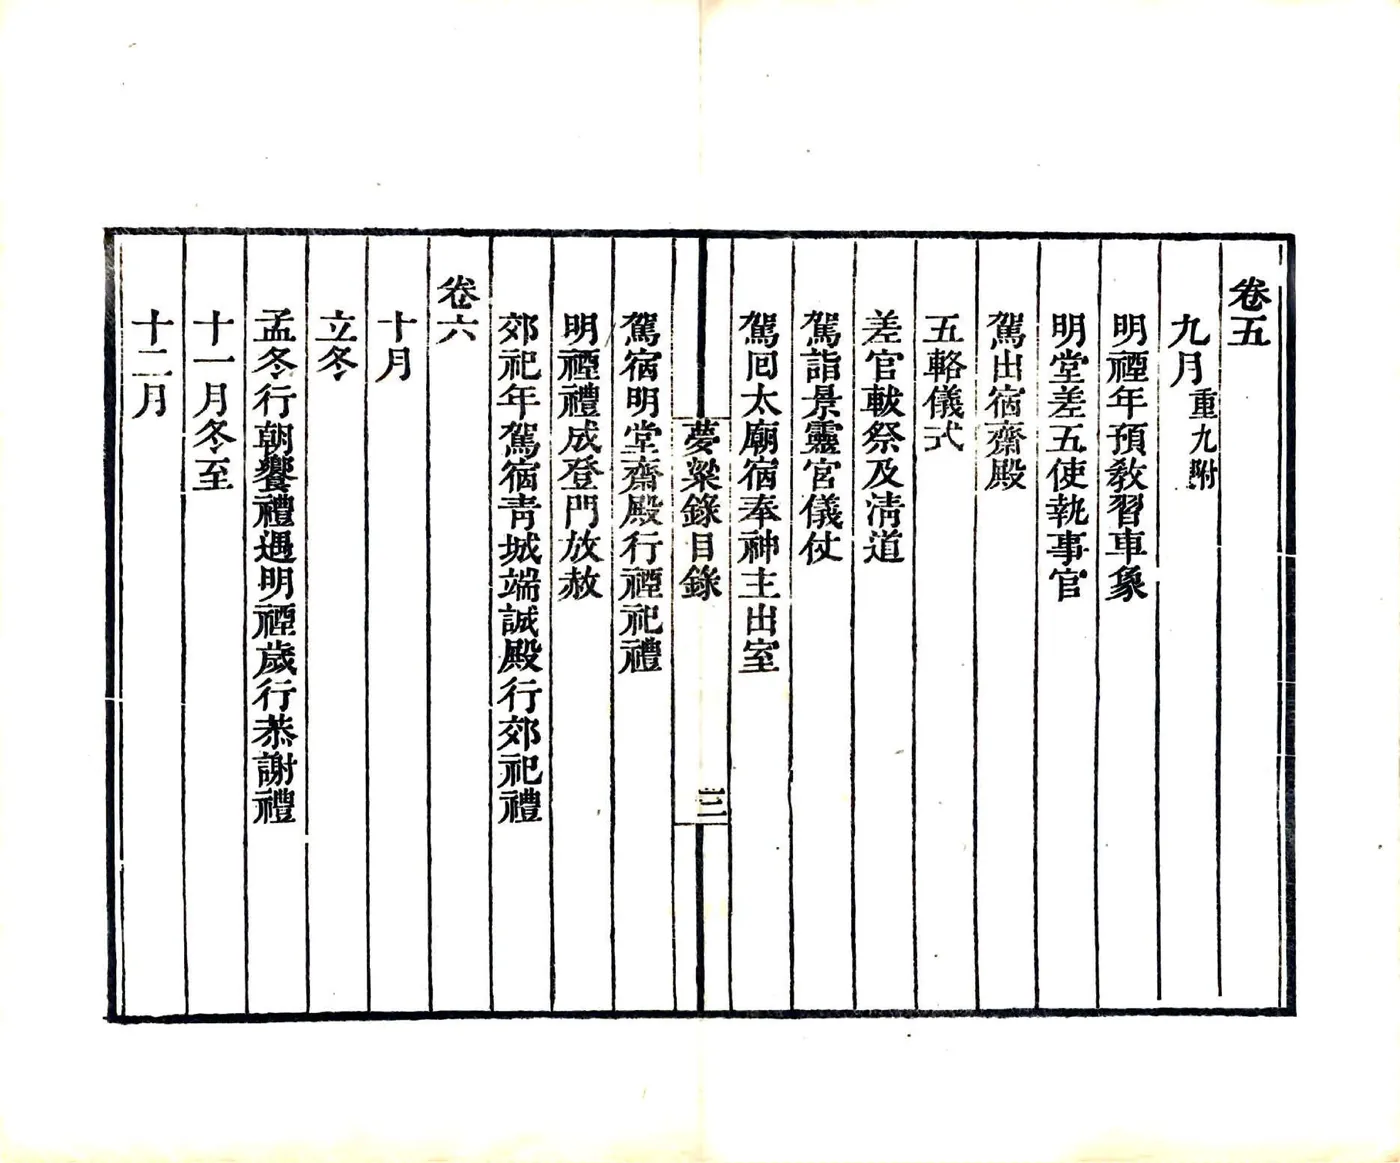 卷五
九月重九附
明禋年預教習車象
明堂差五使執事官
駕出宿齋殿
五輅儀式
差官軷祭及淸道
駕詣景靈宮儀仗
駕回太廟宿奉神主出室
夢粱錄目錄
三
駕宿明堂齋殿行禋祀禮
明禋禮成登門放赦
郊祀年駕宿靑城端誠殿行郊祀禮
卷六
十月
立冬
孟冬行朝饗禮遇明禋歲行恭謝禮
十一月冬至
十二月